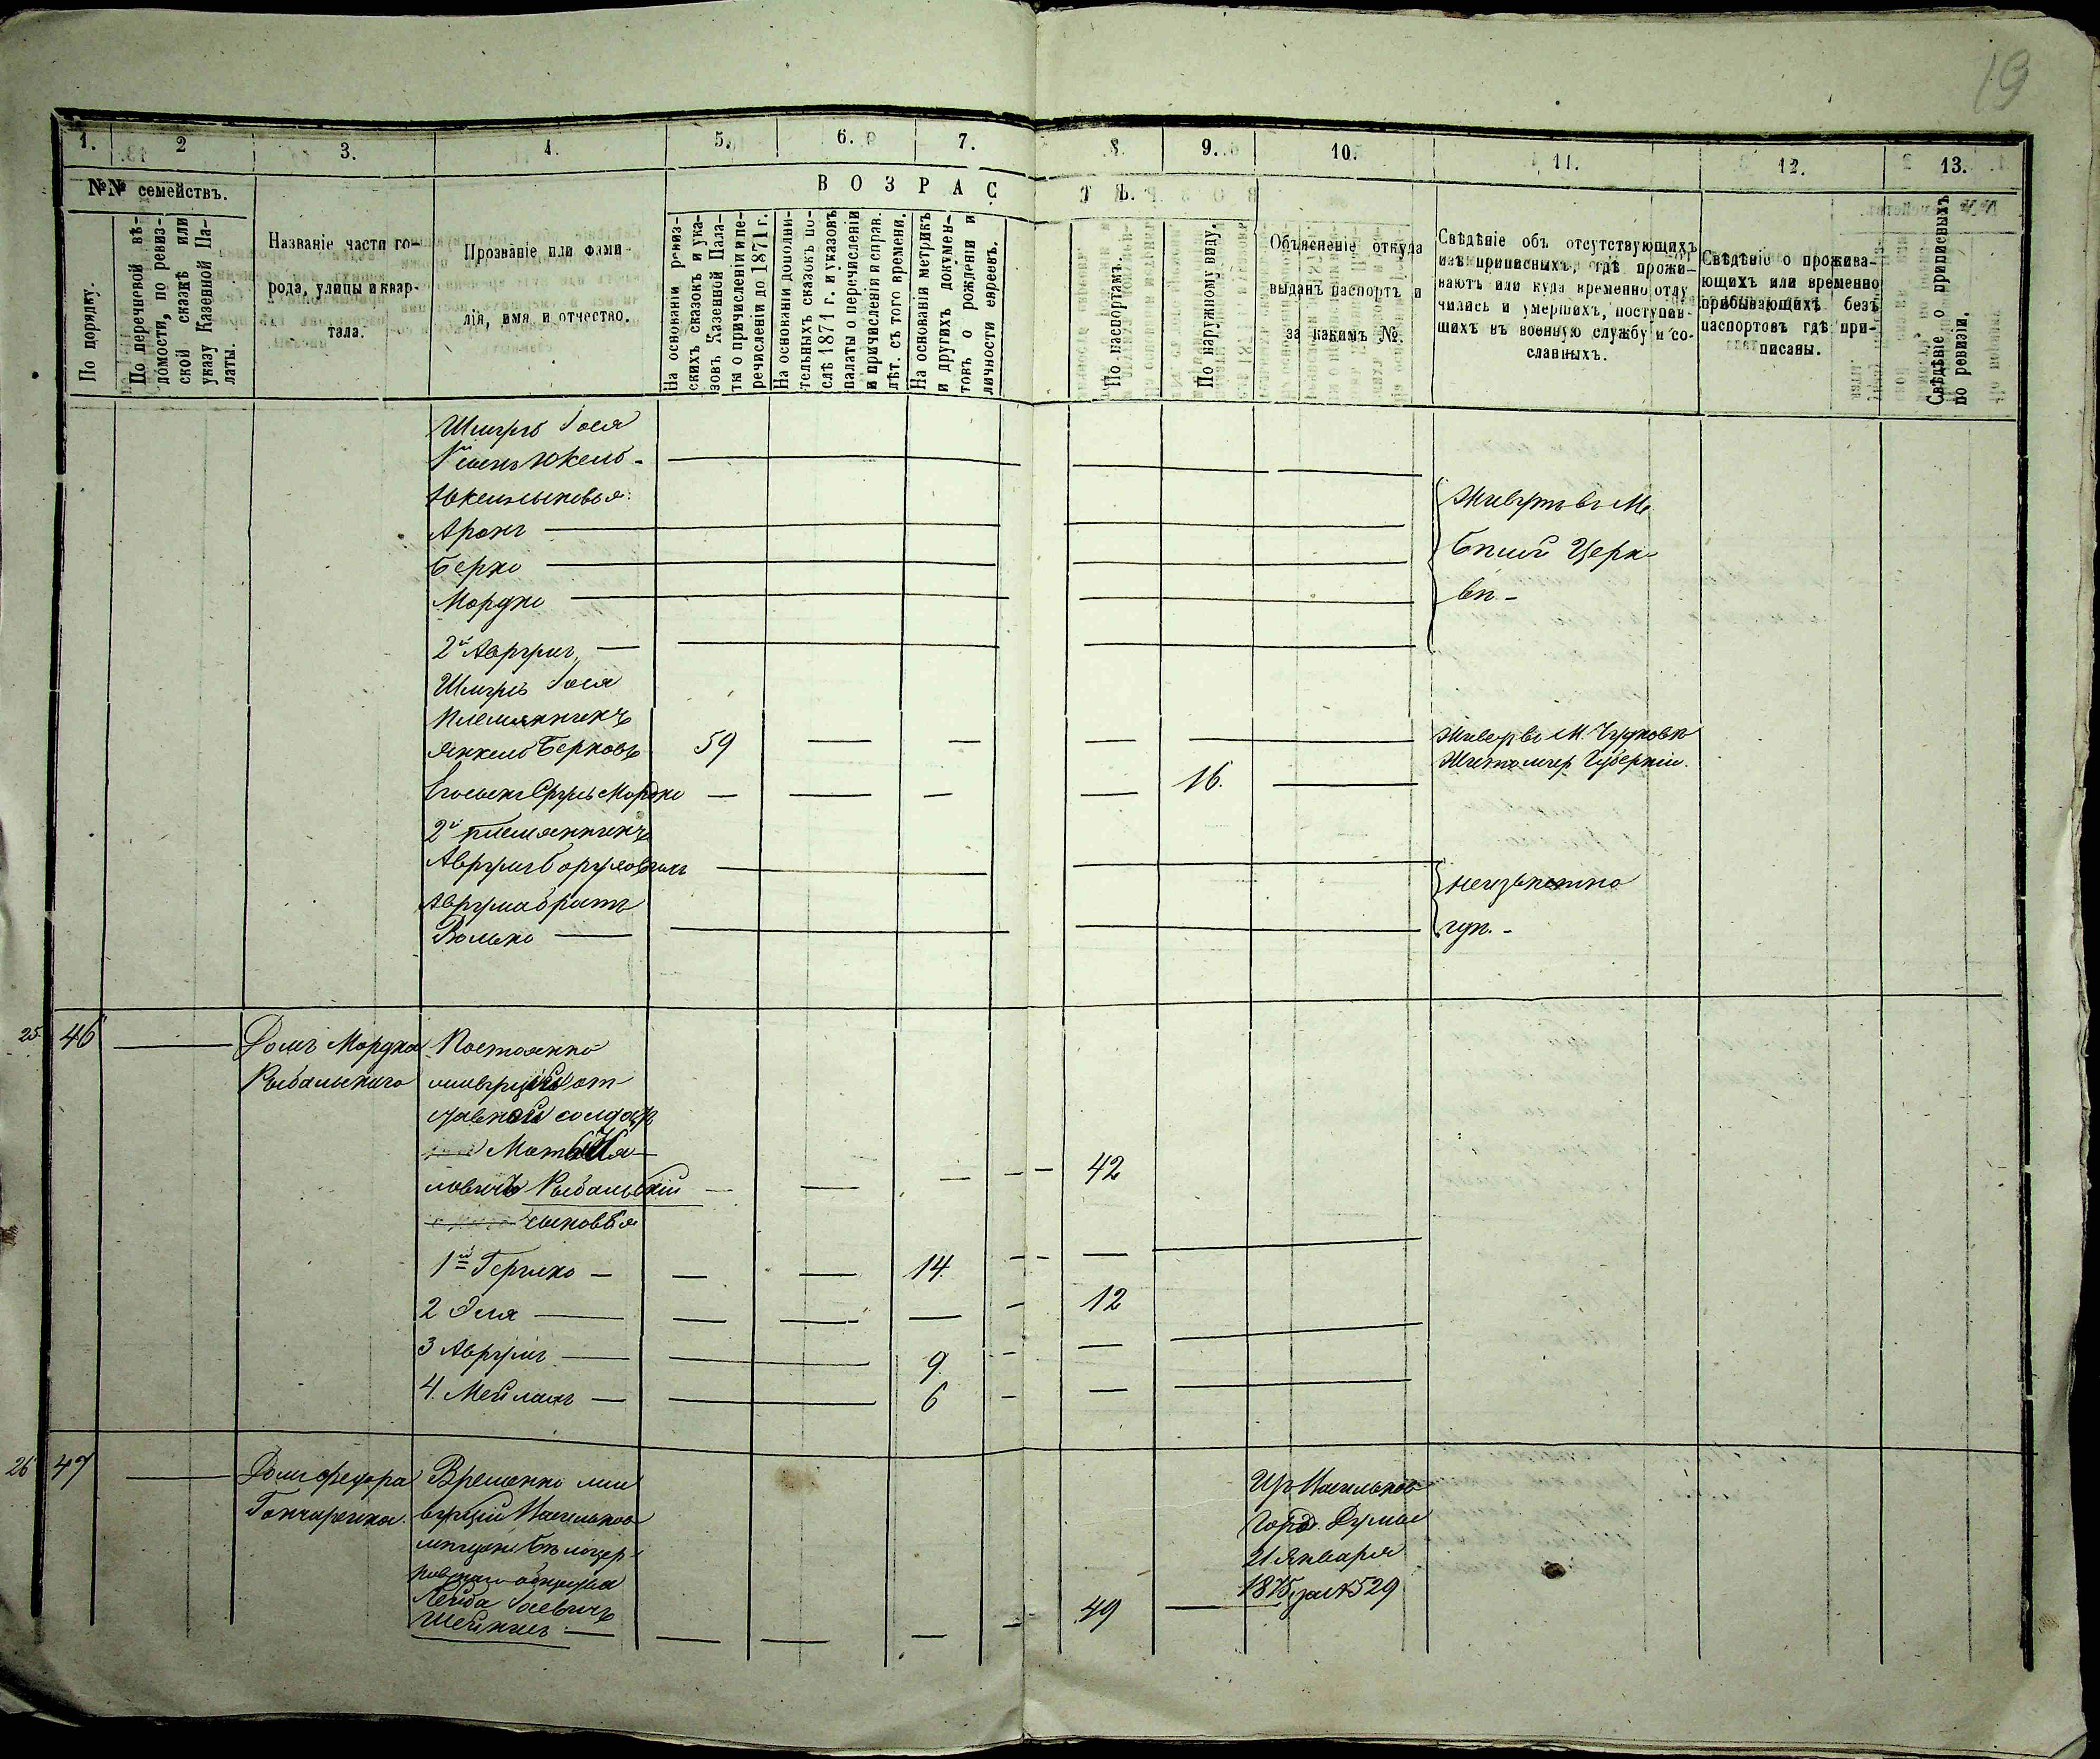 19
1. 2 3. 4. 5. 6. 7. 8. 9. 10. 11. 12. 13.
№№ семействъ.
По порядку.
По перечневой вѣ-
домости, по ревиз-
ской сказкѣ или
указу Казенной Па-
латы.
Названіе части го-
рода, улицы и квар-
тала.
Прозваніе или фами-
лія, имя и отчество.
ВОЗРАСТЪ.
На основаніи ревиз-
скихъ сказокъ и ука-
зовъ Казенной Пала-
ты о причисленіи и пе-
речисленіи до 1871 г.
На основаніи дополни-
тельныхъ сказокъ по-
слѣ 1871 г. и указовъ
палаты о перечисленіи
и причисленіи и справ.
лѣт. съ того времени.
На основаніи метрикъ
и другихъ докумен-
товъ о рожденіи и
личности евреевъ.
По паспортамъ.
По наружному виду.
Объясненіе откуда
выданъ паспортъ и
за какимъ №.
Свѣдѣніе объ отсутствующихъ
изъ приписныхъ, гдѣ прожи-
ваютъ или куда временно отлу
чились и умершихъ, поступив-
шихъ въ военную службу и со-
сланныхъ.
Свѣдѣніе о прожива-
ющихъ или временно
прибывающихъ безъ
паспортовъ гдѣ при-
писаны.
Свѣдѣніе о приписныхъ
по ревизіи.
Шмуль Іося
Юкель
сыновья
Аронъ
Берко
Мордко
Живутъ въ М.
Бѣлой Церк-
вѣ
2й Аврумъ
Шмуль Іося
племянникъ
Янкель Берковъ 59
Живетъ въ М. Чудновѣ
Житомир. Губерніи.
Его сынъ Сруль Мордко 16.
2й племянникъ
Аврумъ Боруховичъ
Аврума братъ
Волько
неизвѣстно
гдѣ.
25 46 Домъ Мордка Постоянно
Рыбальскаго живущій от
ставной солдатъ
Мот
ловичъ Рыбальскій 42
сыновья
1й Гершко 14.
2 Эля 12
3 Аврумъ 9.
4. Мейлахъ 6
26 47 Домъ Федора Временно жи Изъ Васильков
Гончаренка. вущій Васильков Город. Думы
мѣщан. Бѣлоцер- 21 Января
ковскаго общества 1875 за № 529
Лейба Іосевичъ
Шейнисъ 49